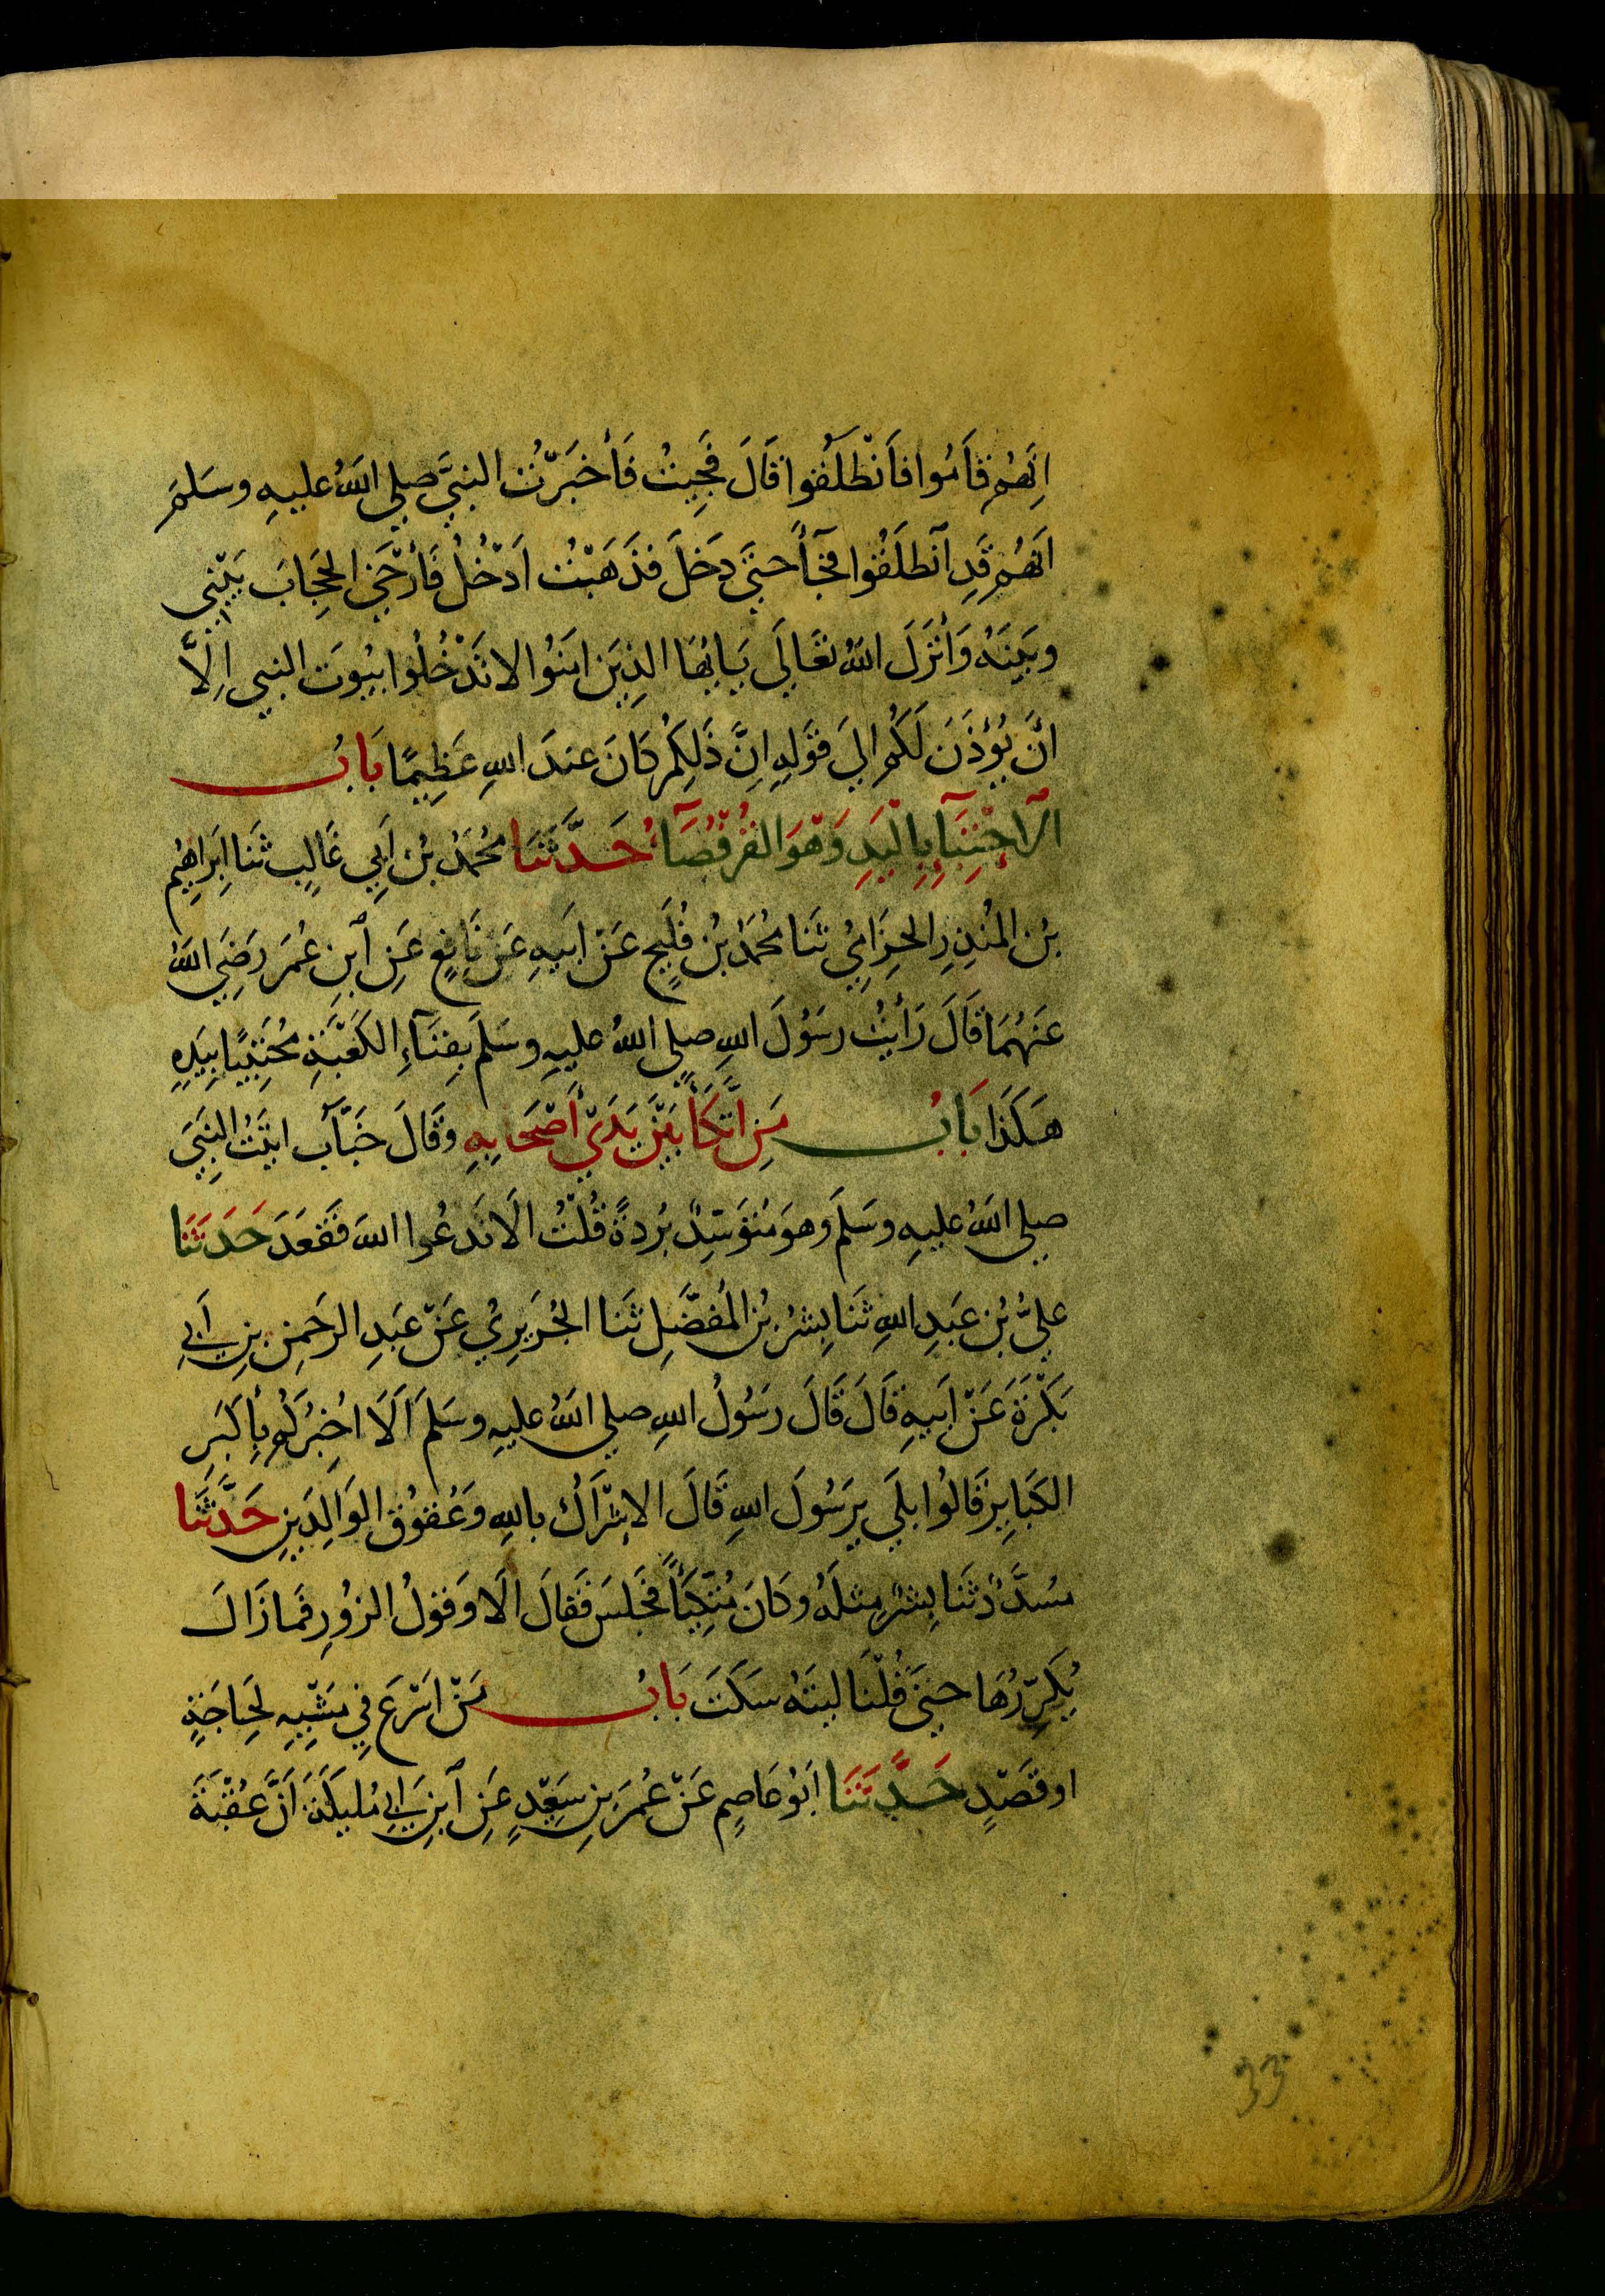 اِنَّهُم قَامُوا فَانْطَلَقُوا قَالَ فَجِيتُ فَأَخْبَرْتُ النبيَّ صلى اللهُ عليهِ وسَلمَ
اَنهُم قَدِ اَنطَلَقُوا فجآءَ حتىَّ دَخَلَ فذَهَبْتُ اَدْخُلُ فَأَرْخَي الحِجَابَ بَيْنِي
وبَينَهُ وَأَنْزَلَ اللهُ تعَالَى يَايهَا الذِينَ امَنُوا لا تَدْخُلُوا بيُوتَ النبي اِلَّا
اَنْ يُؤذَنَ لَكُم الىَ قَولهِ اِنَّ ذَلِكُم كَانَ عندَ اللهِ عَظِيمًا بَابُ
الاحْتِبَآءِ بِاليَدِ وَهْوَ القُرفُصَآءُ حَدَّثَنَا محُمَّدُ بْنُ اَبِي غَالِبٍ ثَنا اِبرَاهِيمُ
بْنُ المنُذِرِ الحِزَامِيُ ثنَا محُمَدُ بْنُ فُلَيحٍ عَنْ اَبيهِ عَن نَافِعٍ عَنِ اَبنِ عُمَرَ رَضِيَ اللهُ
عَنهُمَا قَالَ رَأيْتُ رسَوُلَ اللهِ صلى اللهُ عليهِ وسَلمَ بِفِنَآءِ الكَعْبَةِ محُتَبِيًا بيَدِهِ
هَكَذَا بَابُ مَنِ اتَّكَأَ بَيْنَ يَدَيْ أَصْحَابِهِ وَقَالَ خَبَّاب اتَيْتُ النِبيَّ
صلى اللهُ عليهِ وسَلمَ وهوَ مُتوَسِّدٌ برُدةً قُلْتُ الَا تَدعُوا اللهَ فَقعَدَ حَدَثَنَا
عَليُّ بْنُ عَبدِ اللهِ ثنَا بِشرُ بْنُ المُفضَّلِ ثَنا الجُرَيرِيُ عَنْ عَبدِ الرحَمنِ بنِ اَبي
بَكْرَةَ عَنْ اَبيهِ قَالَ قَالَ رسَوُلُ اللهِ صلى اللهُ عليهِ وسَلمَ اَلَا اخُبِرُكُم بِأَكبَرِ
الكَبَايِرِ قَالُوا بلَي يرَسُولَ اللهِ قَالَ الاِشْرَاكُ باللهِ وَعُقوُقُ الوَالِدَينِ حَدَّثَنَا
مسُدَّدٌ ثَنا بِشرٌ مِثلَهُ وكَانَ مُتَّكِيًا فجَلسَ فَقالَ الَا وَقوْلُ الزوُرِ فَمازَالَ
يُكَرِّرُهَا حتىَّ قُلْنَا ليتَهُ سكَتَ بَابُ مَنْ اسْرَعَ فِي مَشْيِهِ لحِاجَةٍ
او قصَدٍ حَدَّثَنَا اَبُو عَاصِمٍ عَنْ عُمرَ بنِ سَعِيْدٍ عَنِ اَبنِ اَبي مُليكَةَ اَنَّ عُقْبَةَ
33